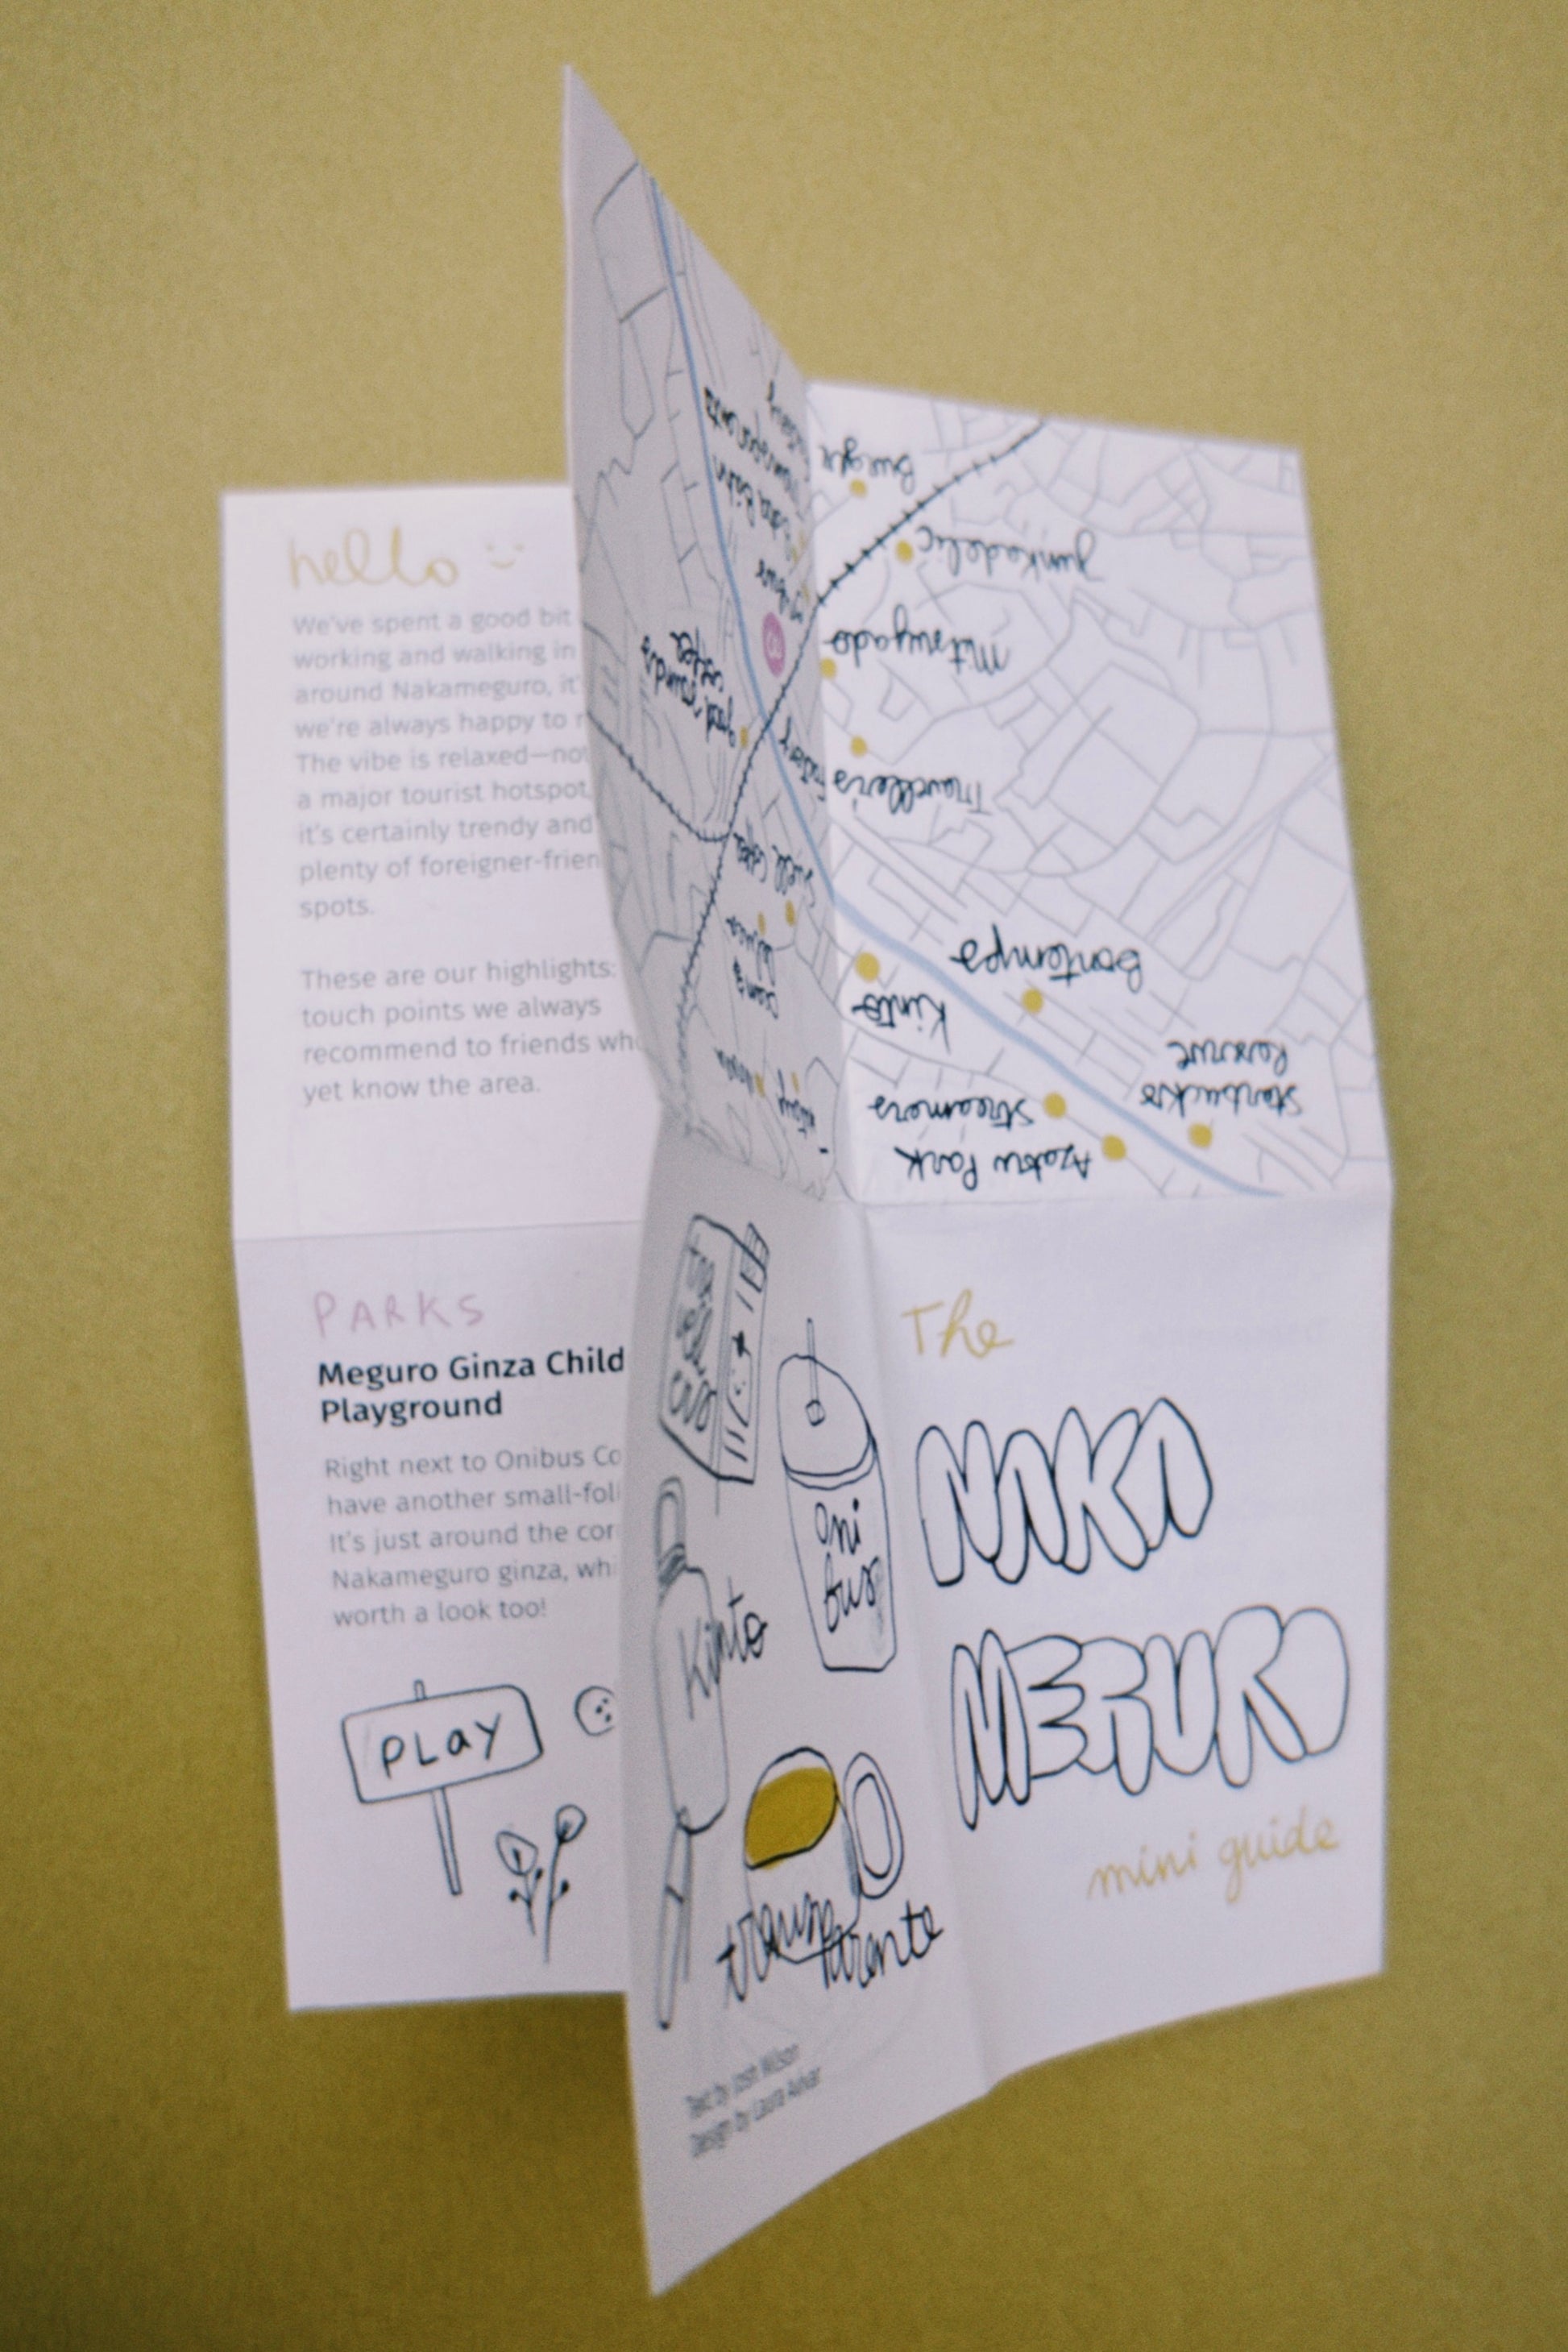 hello
We've spent a good bit
working and walking in
around Nakameguro, it'
we're always happy to r
The vibe is relaxed—not
a major tourist hotspot,
it's certainly trendy and
plenty of foreigner-frien
spots.
These are our highlights:
touch points we always
recommend to friends who
yet know the area.
PARKS
Meguro Ginza Child
Playground
Right next to Onibus Co
have another small-foli
It's just around the cor
Nakameguro ginza, whi
worth a look too!
PLAY
Burger
Junkadelic
Mitsuyado
Traveller's
Factory
good sounds
coffee
Onibus
Bontemps
Kinto
Starbucks
Reserve
Streamers
Azabu Park
Oni
bus
Kinto
transparente
Text by Josh Wilson
Design by Laura
The
NAKA
MEGURO
mini guide